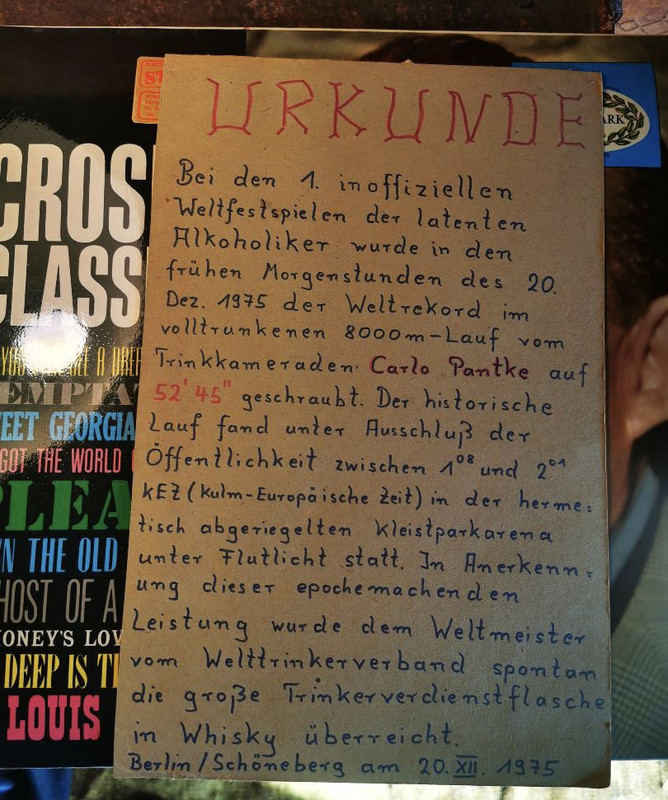 CROS
CLASS
EMPTA
EET GEORGIA
GOT THE WORLD
PLEA
N THE OLD
HOST OF A
HONEY'S LOV
DEEP IS T
LOUIS
ST
ARK
URKUNDE
Bei den 1. inoffiziellen
Weltfestspielen der latenten
Alkoholiker wurde in den
frühen Morgenstunden des 20.
Dez. 1975 der Weltrekord im
volltrunkenen 8000m-Lauf vom
Trinkkameraden Carlo Pantke auf
52' 45" geschraubt. Der historische
Lauf fand unter Ausschluß der
Öffentlichkeit zwischen 1⁰⁸ und 2⁰¹
KEZ (Kulm-Europäische Zeit) in der herme=
tisch abgeriegelten Kleistparkarena
unter Flutlicht statt. In Anerkenn=
ung dieser epochemachenden
Leistung wurde dem Weltmeister
vom Welttrinkerverband spontan
die große Trinkerverdienstflasche
in Whisky überreicht.
Berlin/Schöneberg am 20. XII. 1975